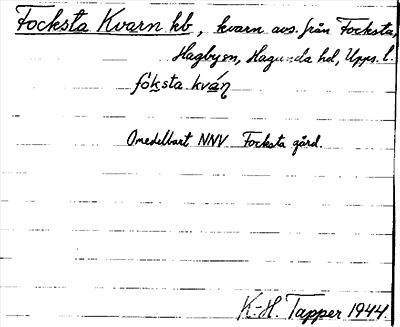 Focksta Kvarn kb, kvarn avs. från Focksta,
Hagbysn, Hagunda hd, Upps. l.
fóksta kváṇ
Omedelbart NNV Focksta gård.
K-H. Tapper 1944.